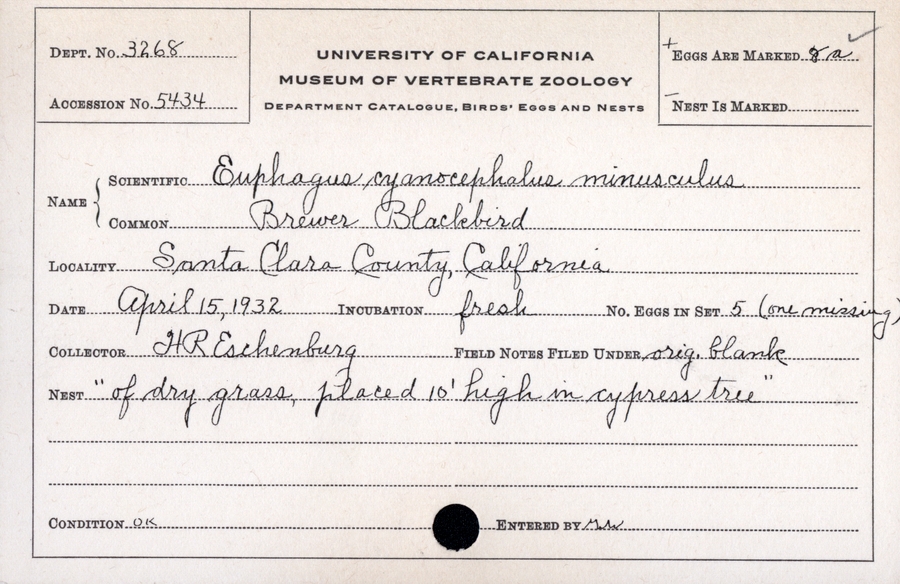 DEPT. No. 3268
ACCESSION No. 5434
UNIVERSITY OF CALIFORNIA
MUSEUM OF VERTEBRATE ZOOLOGY
DEPARTMENT CATALOGUE, BIRDS' EGGS AND NESTS
+ EGGS ARE MARKED 8 a ✓
– NEST IS MARKED
NAME { SCIENTIFIC Euphagus cyanocephalus minusculus
COMMON Brewer Blackbird
LOCALITY Santa Clara County, California
DATE April 15, 1932 INCUBATION fresh No. EGGS IN SET 5 (one missing)
COLLECTOR HR Eschenburg FIELD NOTES FILED UNDER orig. blank
NEST "of dry grass, placed 10' high in cypress tree"
CONDITION OK ENTERED BY